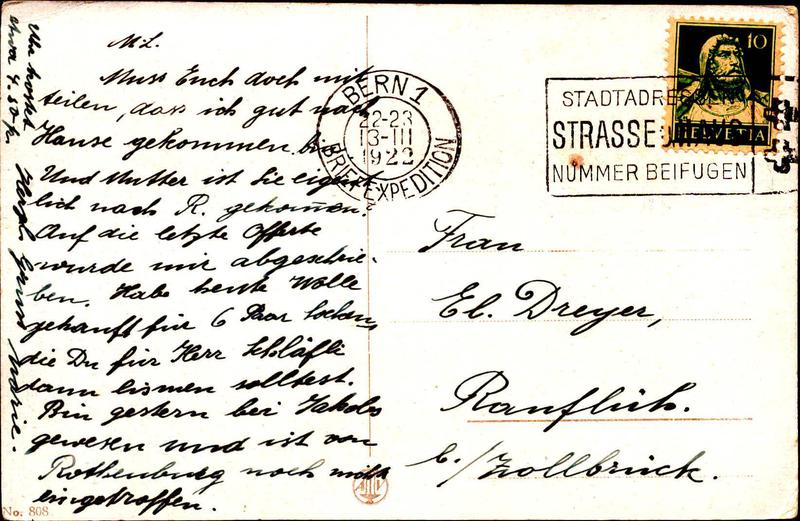 M. L.
Muss Euch doch mit
teilen, dass ich gut nach
Hause gekommen bin
Und Mutter ist Sie eigent
lich nach R. gekommen.
Auf die letzte Offerte
wurde mir abgeschrie-
ben. Habe heute Wolle
gekauft für 6 Paar Socken,
die Du für Herr Schläfli
dann lismen solltest.
Bin gestern bei Jakobs
gewesen und ist von
Rothenburg noch nicht
eingetroffen.
Herzl. Gruss Marie.
Uhr kostet
etwa 4.50 fr.
No. 808
BERN 1
22-23
13-III
1922
BRIEFEXPEDITION
STADTADRESSEN
STRASSE UND
NUMMER BEIFÜGEN
10
HELVETIA
Frau
El. Dreyer,
Ranflüh.
b./Zollbrück.